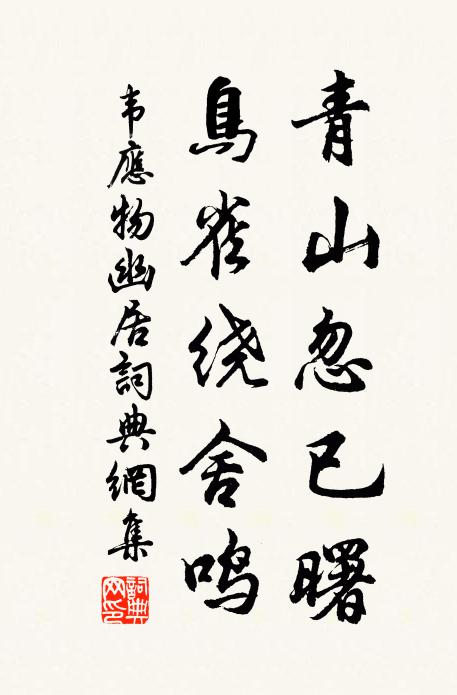 青山忽已曙
鳥雀绕舍鸣
韦應物幽居詞典網集
詞典网印